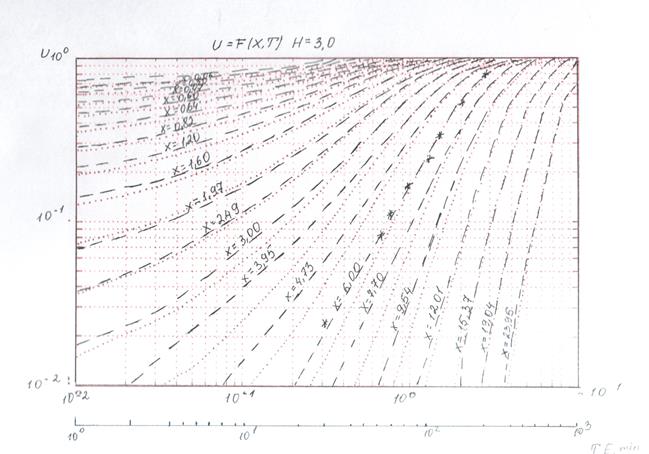 U = F(X,T) H = 3,0
U 10⁰
X=0,82
X=1,20
X=1,60
X=1,97
X=2,49
X=3,00
X=3,95
X=4,73
X=6,00
X=7,70
X=9,54
X=12,01
X=15,37
X=19,04
X=23,95
10⁻¹
10⁻²
10⁻² 10⁻¹ 10⁰ 10¹
10⁰ 10¹ 10² 10³
T E min